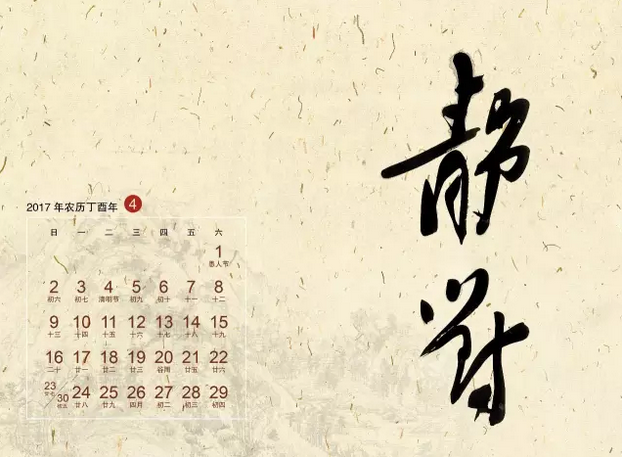 靜對
2017 年农历丁酉年 4
日 一 二 三 四 五 六
1
愚人节
2 3 4 5 6 7 8
初六 初七 清明节 初九 初十 十一 十二
9 10 11 12 13 14 15
十三 十四 十五 十六 十七 十八 十九
16 17 18 19 20 21 22
二十 廿一 廿二 廿三 谷雨 廿五 廿六
23/30 24 25 26 27 28 29
廿七 初五 廿八 廿九 四月 初二 初三 初四